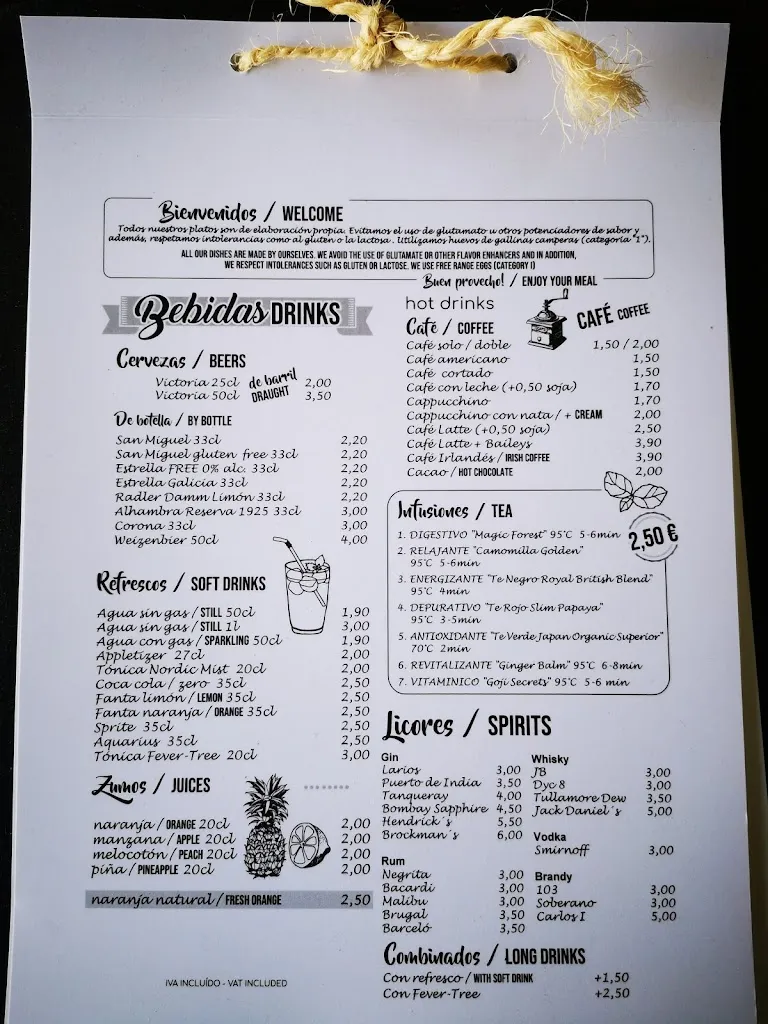 Bienvenidos / WELCOME
Todos nuestros platos son de elaboración propia. Evitamos el uso de glutamato u otros potenciadores de sabor y
además, respetamos intolerancias como al gluten o la lactosa. Utilizamos huevos de gallinas camperas (categoría "1").
ALL OUR DISHES ARE MADE BY OURSELVES. WE AVOID THE USE OF GLUTAMATE OR OTHER FLAVOR ENHANCERS AND IN ADDITION,
WE RESPECT INTOLERANCES SUCH AS GLUTEN OR LACTOSE. WE USE FREE RANGE EGGS (CATEGORY I)
Buen provecho! / ENJOY YOUR MEAL
Bebidas DRINKS
Cervezas / BEERS
Victoria 25cl de barril 2,00
Victoria 50cl DRAUGHT 3,50
De botella / BY BOTTLE
San Miguel 33cl 2,20
San Miguel gluten free 33cl 2,20
Estrella FREE 0% alc. 33cl 2,20
Estrella Galicia 33cl 2,20
Radler Damm Limón 33cl 2,20
Alhambra Reserva 1925 33cl 3,00
Corona 33cl 3,00
Weizenbier 50cl 4,00
Refrescos / SOFT DRINKS
Agua sin gas / STILL 50cl 1,90
Agua sin gas / STILL 1l 3,00
Agua con gas / SPARKLING 50cl 1,90
Appletizer 27cl 2,00
Tónica Nordic Mist 20cl 2,00
Coca cola / zero 35cl 2,50
Fanta limón / LEMON 35cl 2,50
Fanta naranja / ORANGE 35cl 2,50
Sprite 35cl 2,50
Aquarius 35cl 2,50
Tónica Fever-Tree 20cl 3,00
Zumos / JUICES
naranja / ORANGE 20cl 2,00
manzana / APPLE 20cl 2,00
melocotón / PEACH 20cl 2,00
piña / PINEAPPLE 20cl 2,00
naranja natural / FRESH ORANGE 2,50
IVA INCLUÍDO - VAT INCLUDED
hot drinks
Café / COFFEE
CAFÉ COFFEE
Café solo / doble 1,50 / 2,00
Café americano 1,50
Café cortado 1,50
Café con leche (+0,50 soja) 1,70
Cappucchino 1,70
Cappucchino con nata / + CREAM 2,00
Café Latte (+0,50 soja) 2,50
Café Latte + Baileys 3,90
Café Irlandés / IRISH COFFEE 3,90
Cacao / HOT CHOCOLATE 2,00
Infusiones / TEA
2,50 €
1. DIGESTIVO "Magic Forest" 95°C 5-6min
2. RELAJANTE "Camomilla Golden"
95°C 5-6min
3. ENERGIZANTE "Te Negro Royal British Blend"
95°C 4min
4. DEPURATIVO "Te Rojo Slim Papaya"
95°C 3-5min
5. ANTIOXIDANTE "Te Verde Japan Organic Superior"
70°C 2min
6. REVITALIZANTE "Ginger Balm" 95°C 6-8min
7. VITAMINICO "Goji Secrets" 95°C 5-6 min
Licores / SPIRITS
Gin
Larios 3,00
Puerto de India 3,50
Tanqueray 4,00
Bombay Sapphire 4,50
Hendrick´s 5,50
Brockman´s 6,00
Rum
Negrita 3,00
Bacardi 3,00
Malibu 3,00
Brugal 3,50
Barceló 3,50
Whisky
JB 3,00
Dyc 8 3,00
Tullamore Dew 3,50
Jack Daniel´s 5,00
Vodka
Smirnoff 3,00
Brandy
103 3,00
Soberano 3,00
Carlos I 5,00
Combinados / LONG DRINKS
Con refresco / WITH SOFT DRINK +1,50
Con Fever-Tree +2,50